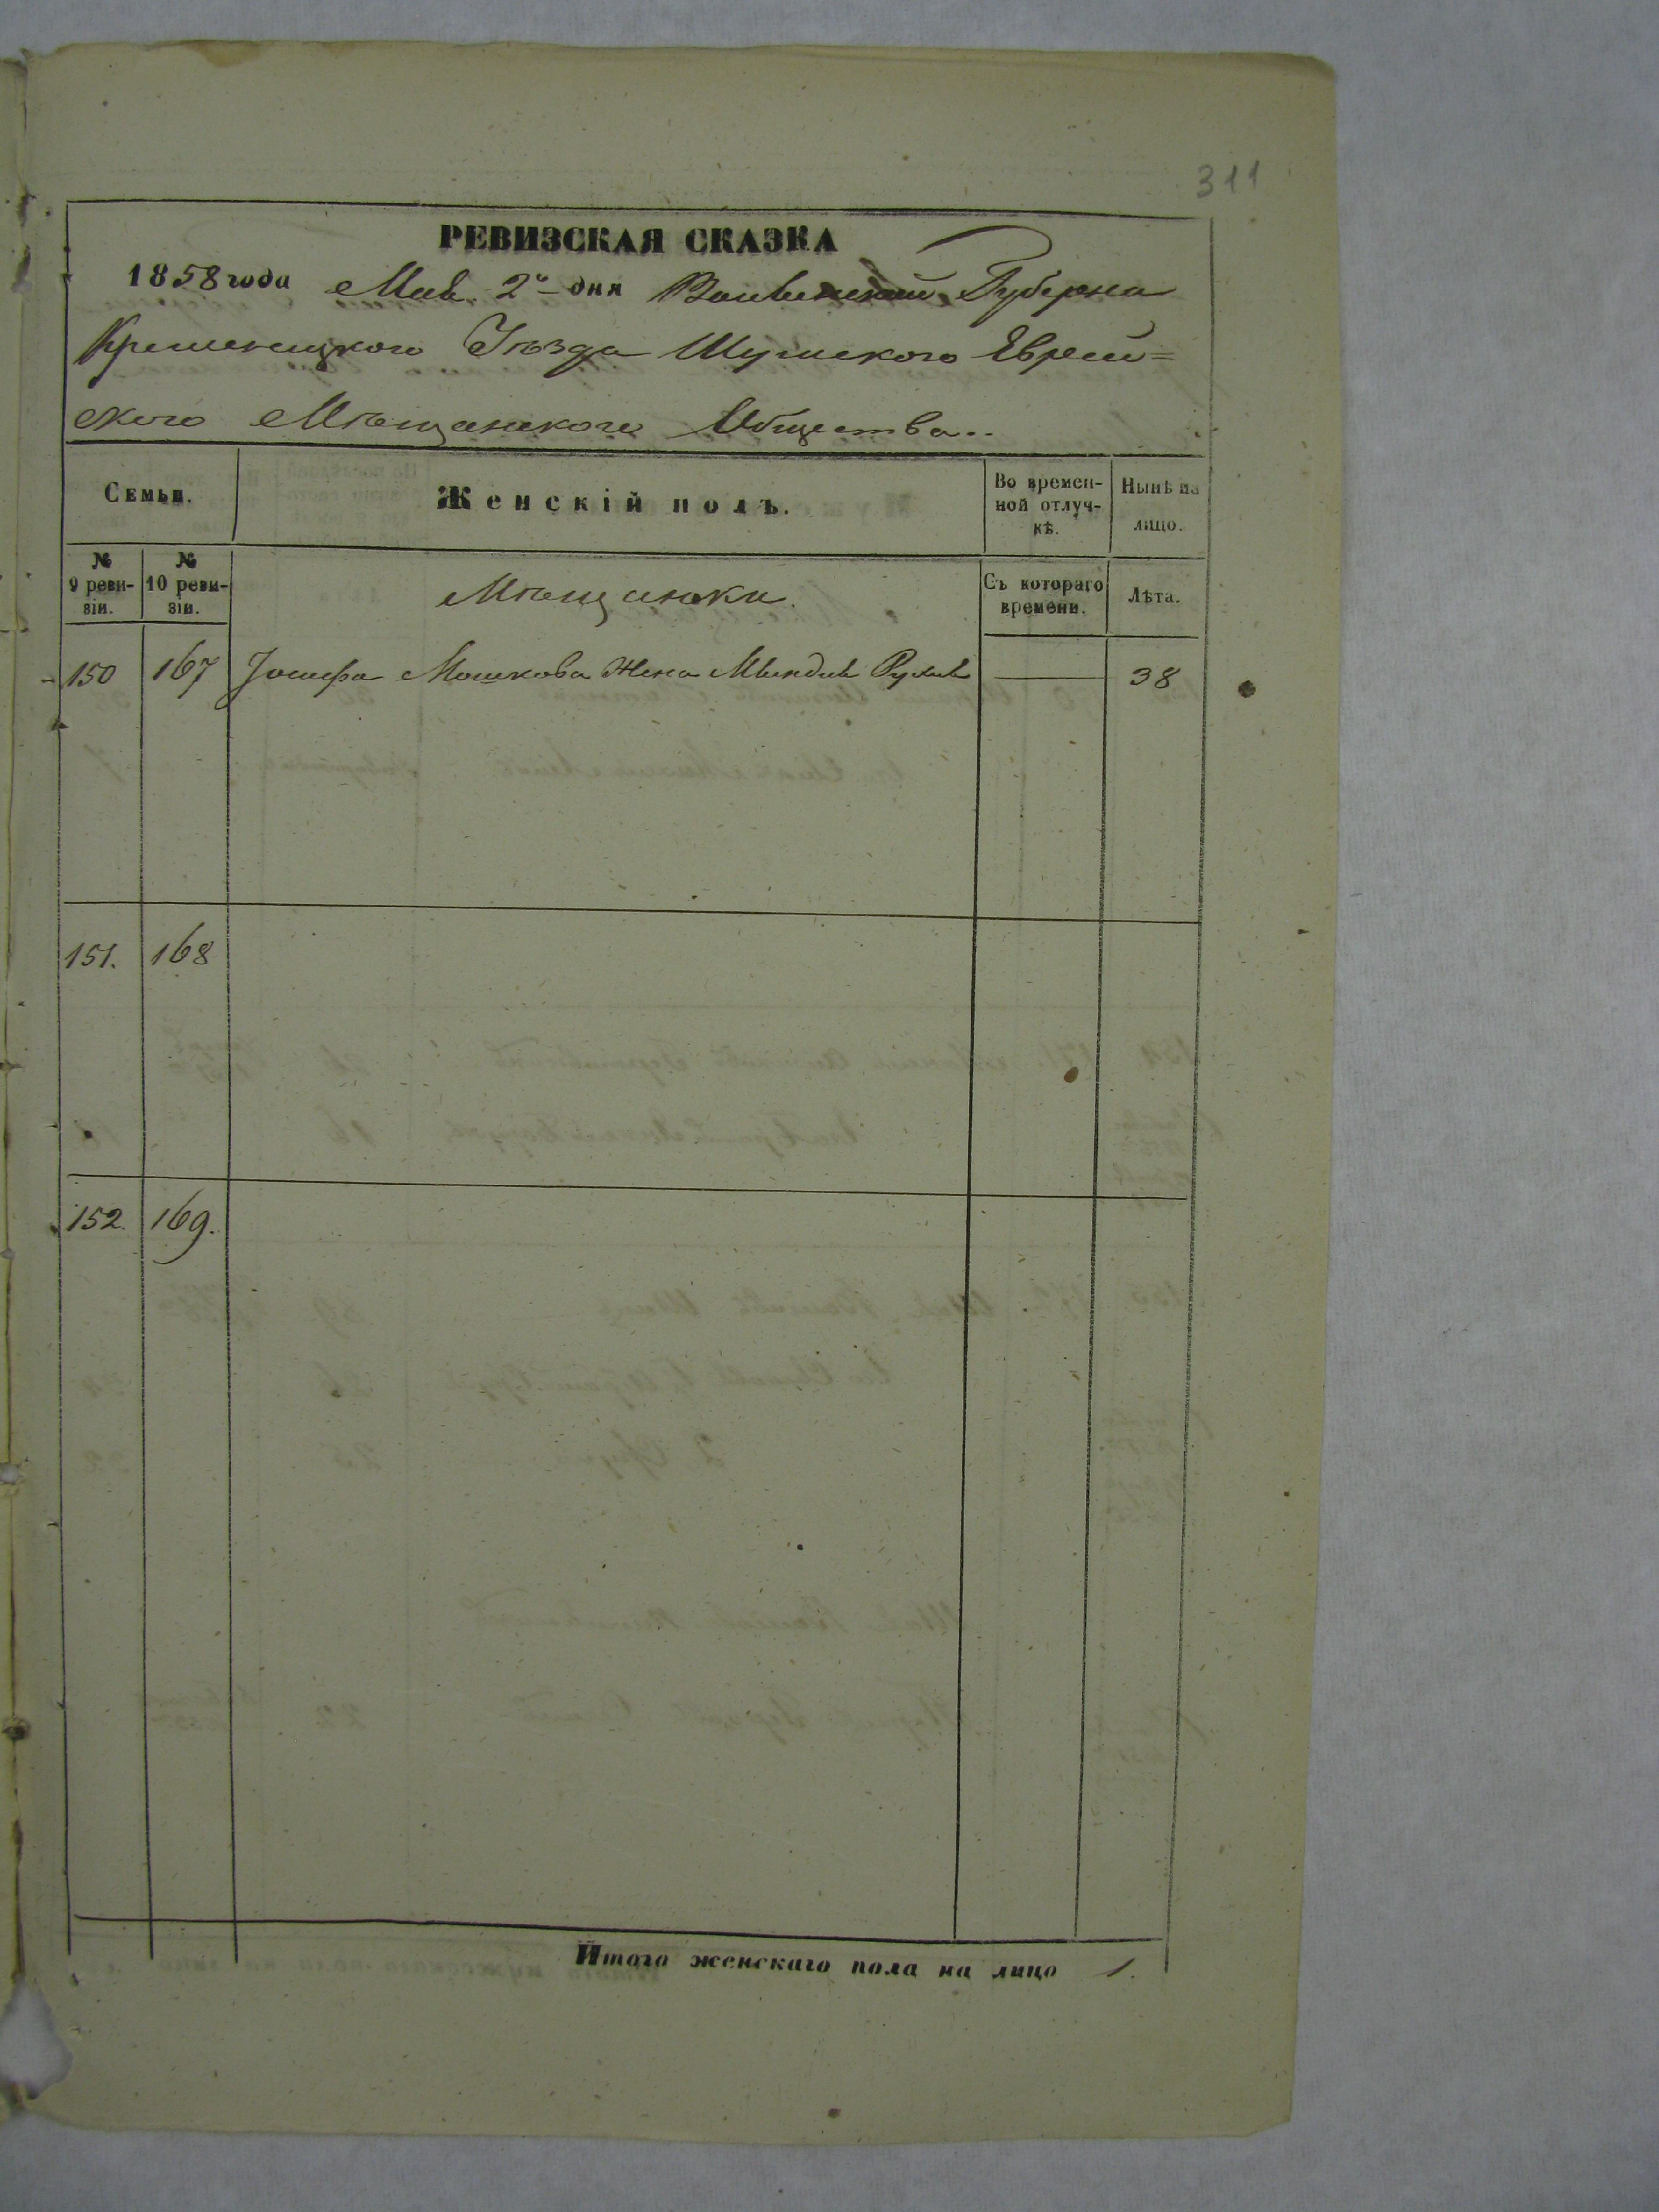 311
РЕВИЗСКАЯ СКАЗКА
1858 года Мая 2го дня Волынской Губерніи
Кременецкого Уѣзда Шумского Еврей=
ского Мѣщанского Общества..
Семьи. Женскій полъ. Во времен-ной отлуч-кѣ. Нынѣ на лицо.
№ 9 реви-зіи. № 10 реви-зіи. Мѣщанки. Съ котораго времени. Лѣта.
150 167 Іосифа Мошкова Жена Миндля Рухля — 38
151. 168
152. 169.
Итого женскаго пола на лицо 1.